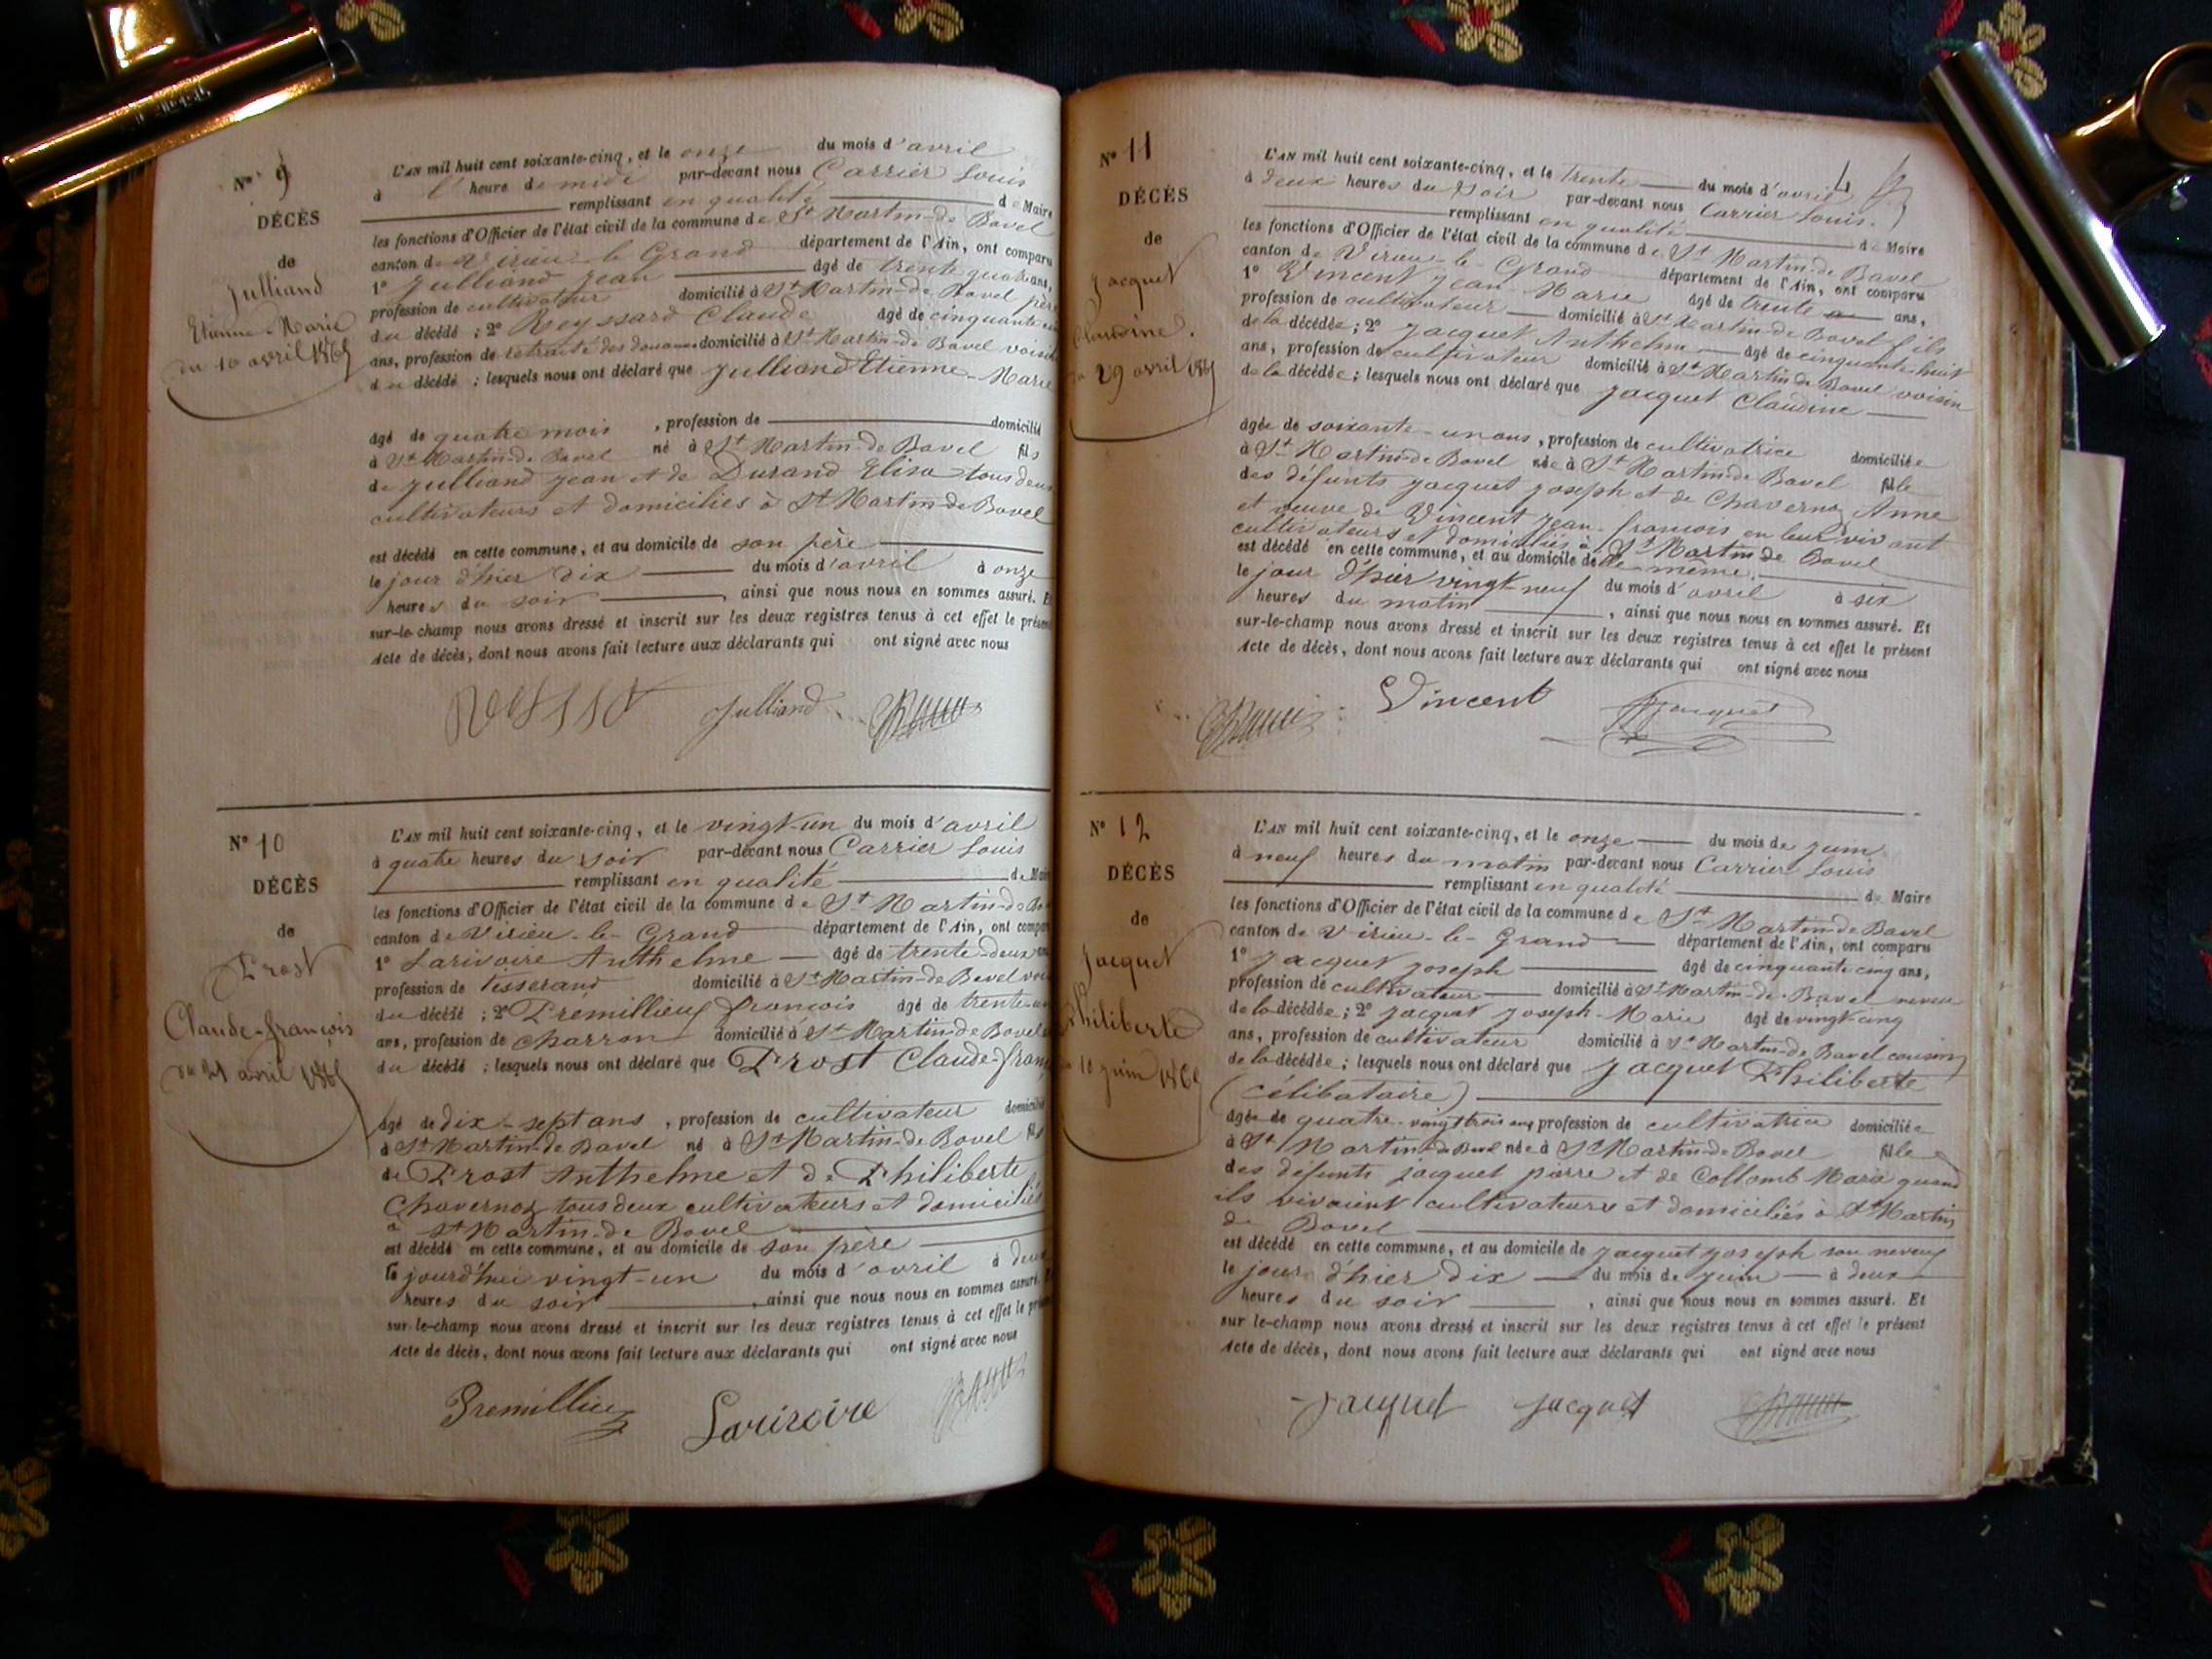 N° 9
DÉCÈS
de
Julliand
Etienne-Marie
du 10 avril 1865
L'AN mil huit cent soixante-cinq, et le onze du mois d'avril
à l' heure de midi par-devant nous Carrier Louis
remplissant en qualité de Maire
les fonctions d'Officier de l'état civil de la commune de St Martin-de Bavel
canton de Virieu-le Grand département de l'Ain, ont comparu
1° Julliand Jean âgé de trente quatre ans,
profession de cultivateur domicilié à St Martin-de Bavel père
du décédé ; 2° Reyssard Claude âgé de cinquante
ans, profession de retraité des douanes domicilié à St Martin-de Bavel voisin
du décédé ; lesquels nous ont déclaré que Julliand Etienne-Marie
âgé de quatre mois , profession de domicilié
à St Martin-de Bavel né à St Martin-de Bavel fils
de Julliand Jean et de Durand Elisa tous deux
cultivateurs et domiciliés à St Martin-de Bavel
est décédé en cette commune, et au domicile de son père
le jour d'hier dix du mois d'avril à onze
heures du soir , ainsi que nous nous en sommes assuré. Et
sur-le-champ nous avons dressé et inscrit sur les deux registres tenus à cet effet le présent
Acte de décès, dont nous avons fait lecture aux déclarants qui ont signé avec nous
Julliand
N° 10
DÉCÈS
de
Prost
Claude-françois
du 21 avril 1865
L'AN mil huit cent soixante-cinq, et le vingt-un du mois d'avril
à quatre heures du soir par-devant nous Carrier Louis
remplissant en qualité de Maire
les fonctions d'Officier de l'état civil de la commune de St Martin-de Ba
canton de Virieu-le-Grand département de l'Ain, ont compar
1° Larivoire Anthelme âgé de trente-deux ans
profession de tisserand domicilié à St Martin-de Bavel voi
du décédé ; 2° Prémillieu françois âgé de trente-
ans, profession de charron domicilié à St Martin-de Bavel
du décédé ; lesquels nous ont déclaré que Prost Claude-franç
âgé de dix-sept ans , profession de cultivateur domicilié
à St Martin-de Bavel né à St Martin-de Bavel fils
de Prost Anthelme et de Philiberte
Chavernoz tous deux cultivateurs et domiciliés
à St Martin-de Bavel
est décédé en cette commune, et au domicile de son père
le jourd'hui vingt-un du mois d'avril à deux
heures du soir , ainsi que nous nous en sommes assuré. Et
sur-le-champ nous avons dressé et inscrit sur les deux registres tenus à cet effet le présent
Acte de décès, dont nous avons fait lecture aux déclarants qui ont signé avec nous
Premillieu Larivoire
N° 11
DÉCÈS
de
Jacquet
Claudine.
du 29 avril 1865
L'AN mil huit cent soixante-cinq, et le trente du mois d'avril
à deux heures du soir par-devant nous Carrier Louis.
remplissant en qualité de Maire
les fonctions d'Officier de l'état civil de la commune de St Martin-de Bavel
canton de Virieu-le-Grand département de l'Ain, ont comparu
1° Vincent Jean-Marie âgé de trente ans,
profession de cultivateur domicilié à St Martin-de Bavel fils
de la décédée ; 2° Jacquet Anthelme âgé de cinquante-huit
ans, profession de cultivateur domicilié à St Martin-de Bavel voisin
de la décédée ; lesquels nous ont déclaré que Jacquet Claudine
âgée de soixante-un ans , profession de cultivatrice domiciliée
à St Martin-de Bavel née à St Martin-de Bavel fille
des défunts Jacquet Joseph et de Chavernoz Anne
et veuve de Vincent Jean-françois en leur vivant
cultivateurs et domiciliés à St Martin de Bavel
est décédé en cette commune, et au domicile de elle-même.
le jour d'hier vingt-neuf du mois d'avril à six
heures du matin , ainsi que nous nous en sommes assuré. Et
sur-le-champ nous avons dressé et inscrit sur les deux registres tenus à cet effet le présent
Acte de décès, dont nous avons fait lecture aux déclarants qui ont signé avec nous
Vincent Jacquet
N° 12
DÉCÈS
de
Jacquet
Philiberte
du 10 juin 1865
L'AN mil huit cent soixante-cinq, et le onze du mois de juin
à neuf heures du matin par-devant nous Carrier Louis
remplissant en qualité de Maire
les fonctions d'Officier de l'état civil de la commune de St Martin-de Bavel
canton de Virieu-le-Grand département de l'Ain, ont comparu
1° Jacquet Joseph âgé de cinquante cinq ans,
profession de cultivateur domicilié à St Martin-de-Bavel neveu
de la décédée ; 2° Jacquet Joseph-Marie âgé de vingt-cinq
ans, profession de cultivateur domicilié à St Martin-de Bavel cousin
de la décédée ; lesquels nous ont déclaré que Jacquet Philiberte
(célibataire)
âgée de quatre-vingt trois ans profession de cultivatrice domiciliée
à St Martin-de Bavel née à St Martin-de Bavel fille
des défunts Jacquet pierre et de Collomb Marie quand
ils vivaient cultivateurs et domiciliés à St Martin
de Bavel
est décédé en cette commune, et au domicile de Jacquet Joseph son neveu
le jour d'hier dix du mois de juin à deux
heures du soir , ainsi que nous nous en sommes assuré. Et
sur-le-champ nous avons dressé et inscrit sur les deux registres tenus à cet effet le présent
Acte de décès, dont nous avons fait lecture aux déclarants qui ont signé avec nous
Jacquet Jacquet